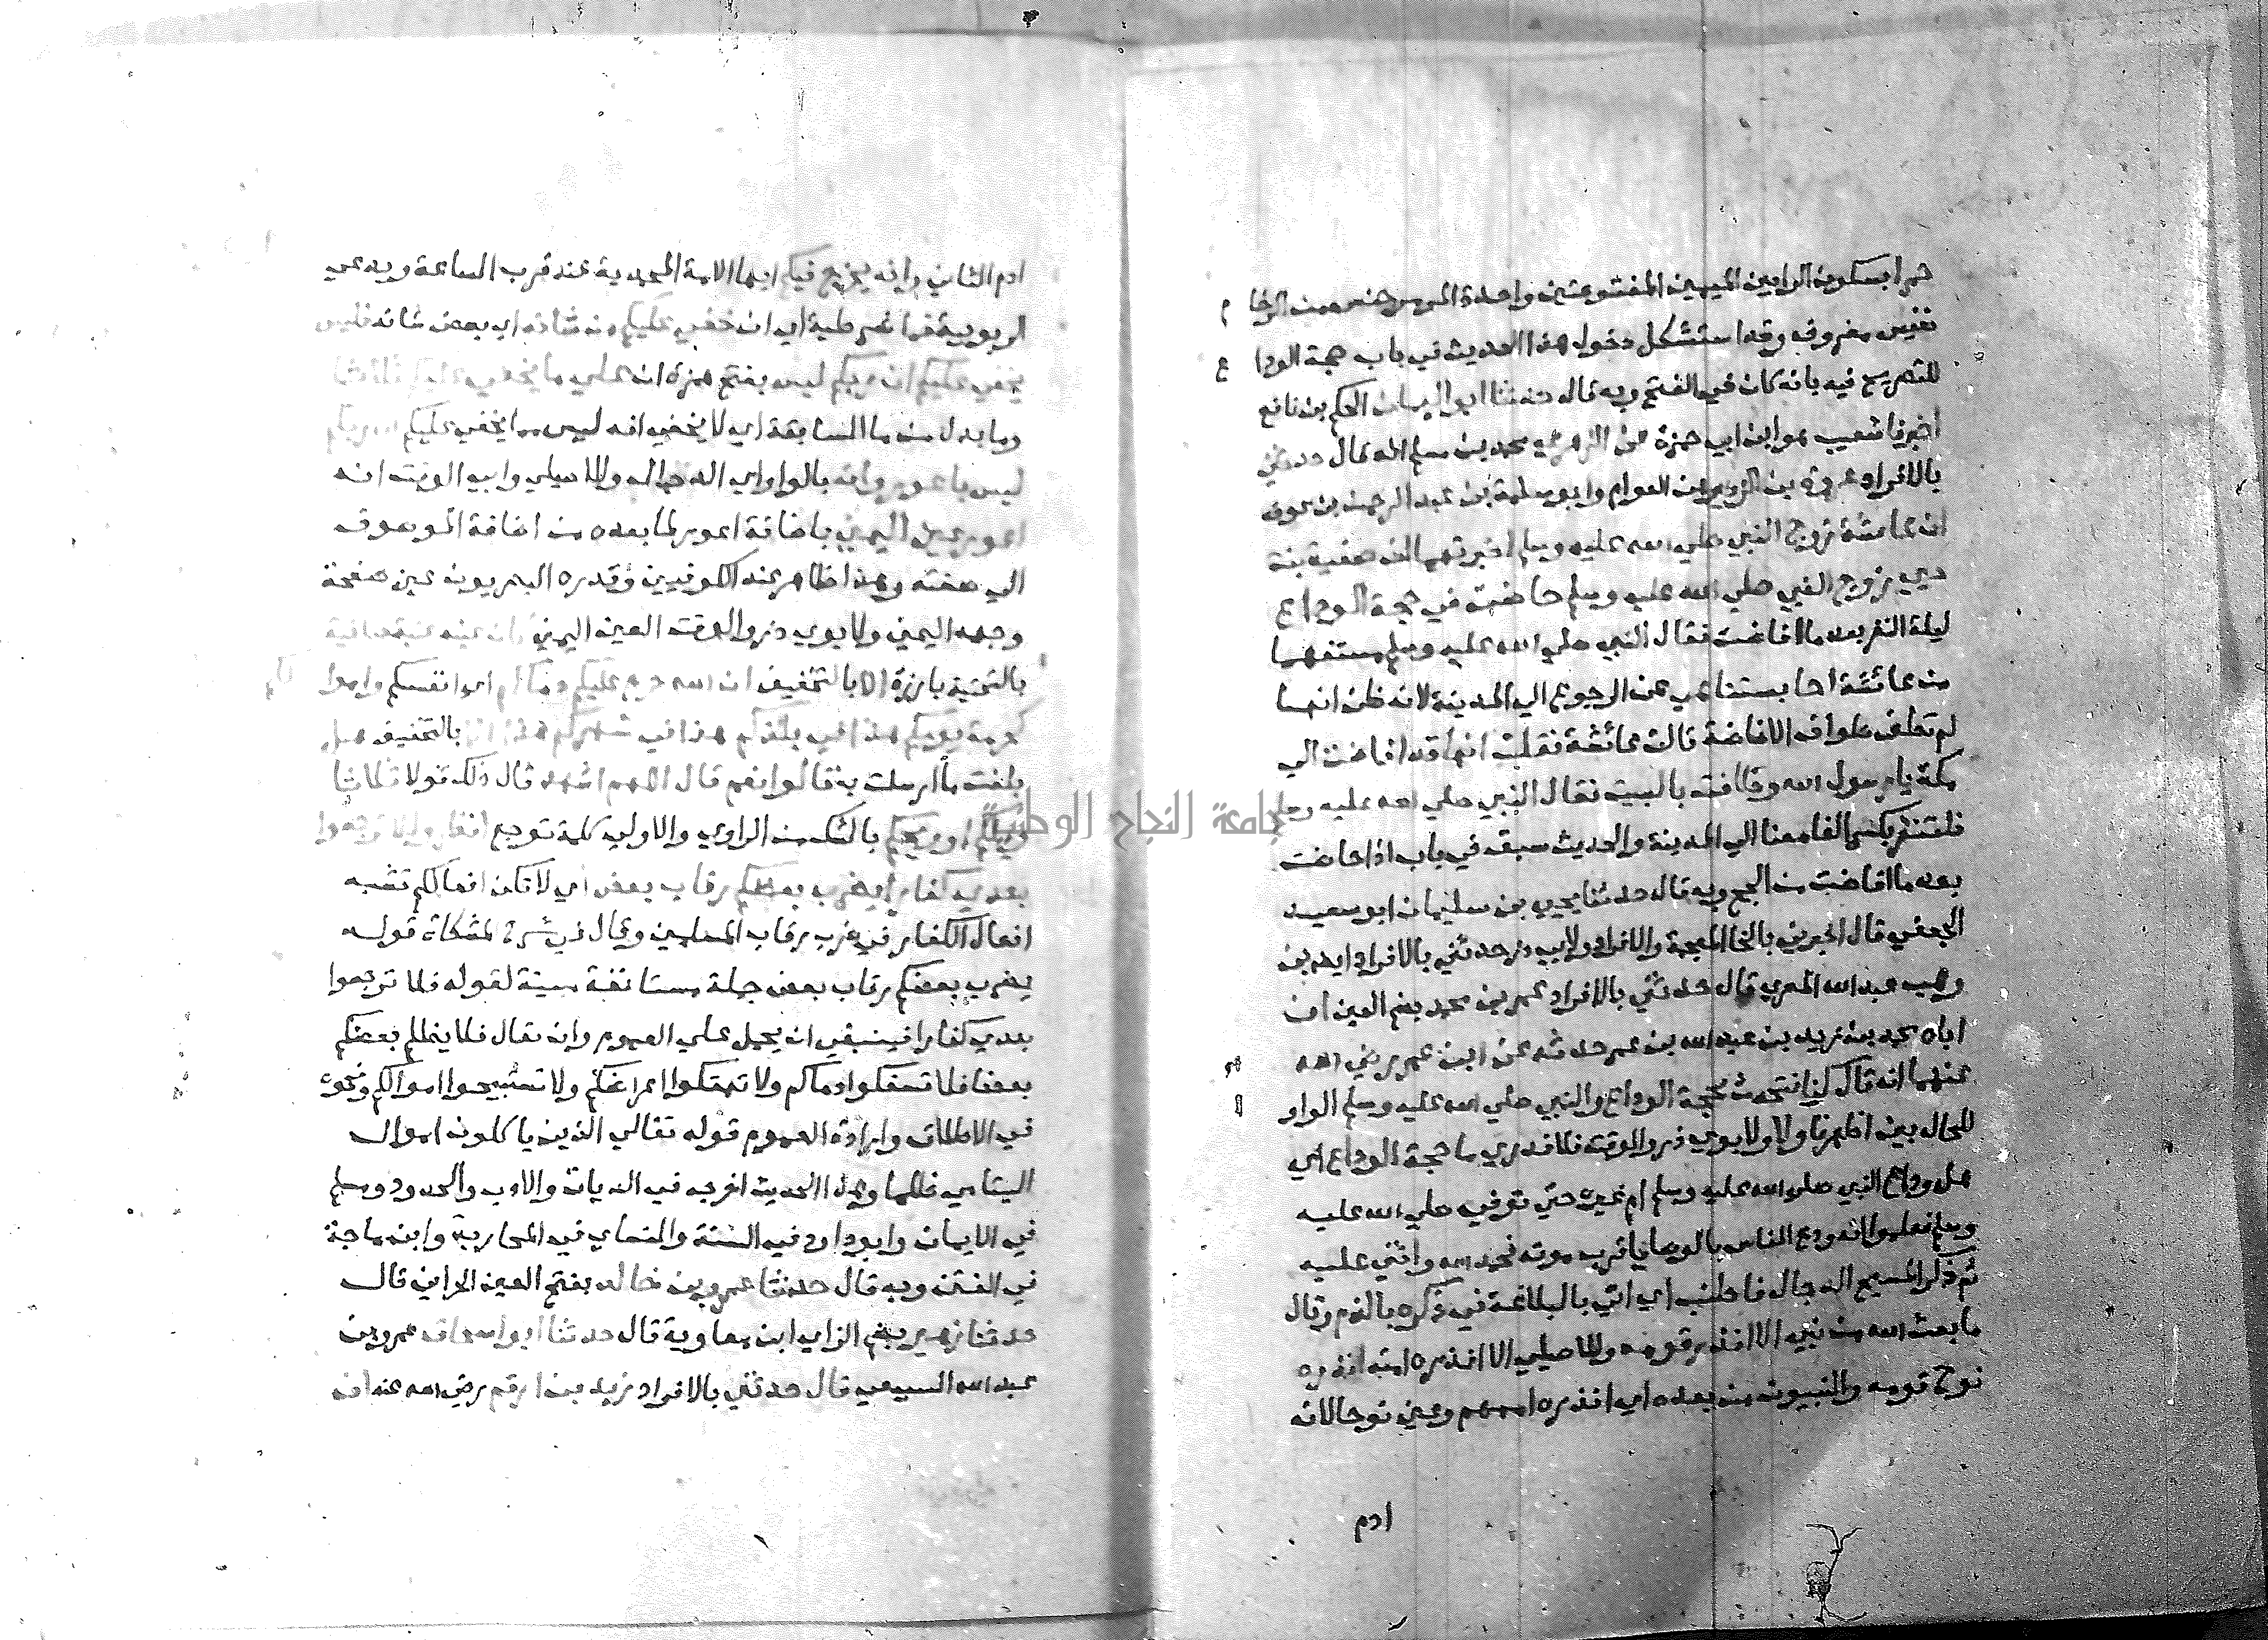 حمرا بسكون الرا بين الميمين المفتوحتين واحدة المرمر جنس من الرخام
نفيس معروف وقد استشكل دخول هذا الحديث في باب حجة الوداع
للتصريح فيه بانه كان في الفتح وبه قال حدثنا ابو اليمان الحكم بن نافع
اخبرنا شعيب هو ابن ابي حمزة عن الزهري محمد بن مسلم انه قال حدثني
بالافراد عروة بن الزبير بن العوام وابو سلمة بن عبد الرحمن بن عوف
ان عائشة زوج النبي صلي الله عليه وسلم اخبرتهما ان صفية بنت
حيي زوج النبي صلي الله عليه وسلم حاضت في حجة الوداع
ليلة النفر بعد ما افاضت فقال النبي صلي الله عليه وسلم مستفهما
من عائشة احابستنا هي عن الرجوع الي المدينة لانه ظن انها
لم تطف طواف الافاضة قالت عائشة فقلت انها قد افاضت الي
مكة يا رسول الله وطافت بالبيت فقال النبي صلي الله عليه وسلم
فلتنفر بكسر الفا معنا الي المدينة والحديث سبق في باب اذا حاضت
بعد ما افاضت من الحج وبه قال حدثنا يحيي بن سليمان ابو سعيد
الجعفي قال اخبرني بالخا المعجمة والافراد ولابي ذر حدثني بالافراد ايضا بن
وهب عبد الله المصري قال حدثني بالافراد عمر بن محمد بضم العين ان
اباه محمد بن زيد بن عبد الله بن عمر حدثه عن ابن عمر رضي الله
عنهما انه قال كنا نتحدث بحجة الوداع والنبي صلي الله عليه وسلم الواو
للحال بين اظهرنا ولا ولابوي ذر والوقت فلا ندري ما حجة الوداع اي
هل وداع النبي صلي الله عليه وسلم ام غيره حتي توفي صلي الله عليه
وسلم فعلموا انه ودع الناس بالوصايا قرب موته فحمد الله واثني عليه
ثم ذكر المسيح الدجال فاطنب اي اتي بالبلاغة في ذكره بالذم وقال
ما بعث الله من نبي الا انذر قومه وللاصيلي الا انذره امته انذره
نوح قومه والنبيون من بعده اي انذره اممهم وعين نوحا لانه
ادم
ادم الثاني وانه يخرج فيكم ايها الامة المحمدية عند قرب الساعة ويدعي
الربوبية فما شرطية اي ان خفي عليكم من شانه اي بعض شانه فليس
يخفي عليكم ان ربكم ليس بفتح همزة ان علي ما يخفي عليكم ثلاثا
وما بدل من ما السابقة اي لا يخفي انه ليس مما يخفي عليكم ان ربكم
ليس باعور وانه بالواو اي الدجال وللاصيلي وابي الوقت انه
اعور عين اليمني باضافة اعور لما بعده من اضافة الموصوف
الي صفته وهذا ظاهر عند الكوفيين وقدره البصريون عين صفحة
وجهه اليمني ولابوي ذر والوقت العين اليمني كان عينه عنبة طافية
بالتحتية بارزة الا بالتخفيف ان الله حرم عليكم دماكم اي انفسكم واموالكم
كحرمة يومكم هذا في بلدكم هذا في شهركم هذا الا بالتخفيف هل
بلغت ما ارسلت به قالوا نعم قال اللهم اشهد قال ذلك قولا ثلاثا
ويلكم او ويحكم بالشك من الراوي والاولي كلمة توجع انظروا لا ترجعوا
بعدي كفارا يضرب بعضكم رقاب بعض اي لا تكن افعالكم تشبه
افعال الكفار في ضرب رقاب المسلمين وقال في شرح المشكاة قوله
يضرب بعضكم رقاب بعض جملة مستانفة مبينة لقوله فلا ترجعوا
بعدي كفارا فينبغي ان يحمل علي العموم وان يقال فلا يظلم بعضكم
بعضا فلا تسفكوا دماكم ولا تهتكوا اعراضكم ولا تستبيحوا اموالكم ونحوه
في الاطلاق وارادة العموم قوله تعالي الذين ياكلون اموال
اليتامي ظلما وهذا الحديث اخرجه في الديات والادب والحدود ومسلم
في الايمان وابو داود في السنة والنساي في المحاربة وابن ماجة
في الفتن وبه قال حدثنا عمرو بن خالد بفتح العين الحراني قال
حدثنا زهير بضم الزاي ابن معاوية قال حدثنا ابو اسحاق عمرو بن
عبد الله السبيعي قال حدثني بالافراد زيد بن ارقم رضي الله عنه ان
جامعة النجاح الوطنية